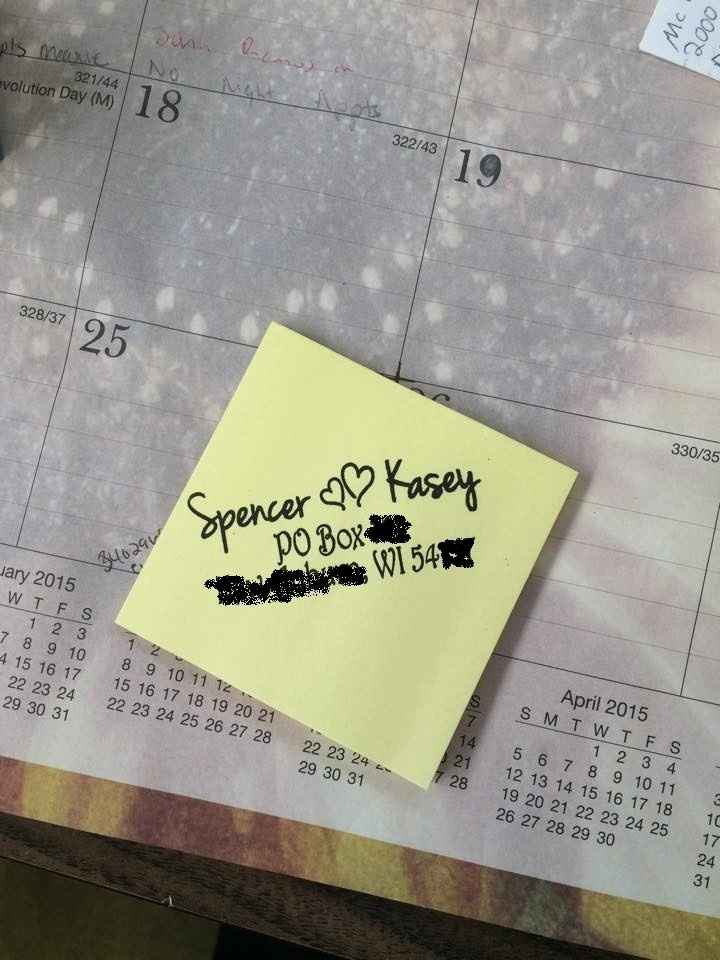 Mc
2000
321/44
evolution Day (M)
No Night Appts
18
322/43
19
328/37
25
26
330/35
Spencer Kasey
PO Box
WI 54
uary 2015
W T F S
1 2 3
7 8 9 10
4 15 16 17
22 23 24
29 30 31
1 2
8 9 10 11 12
15 16 17 18 19 20 21
22 23 24 25 26 27 28
S
7
14
21
28
22 23 24
29 30 31
April 2015
S M T W T F S
1 2 3 4
5 6 7 8 9 10 11
12 13 14 15 16 17 18
19 20 21 22 23 24 25
26 27 28 29 30
3
10
17
24
31